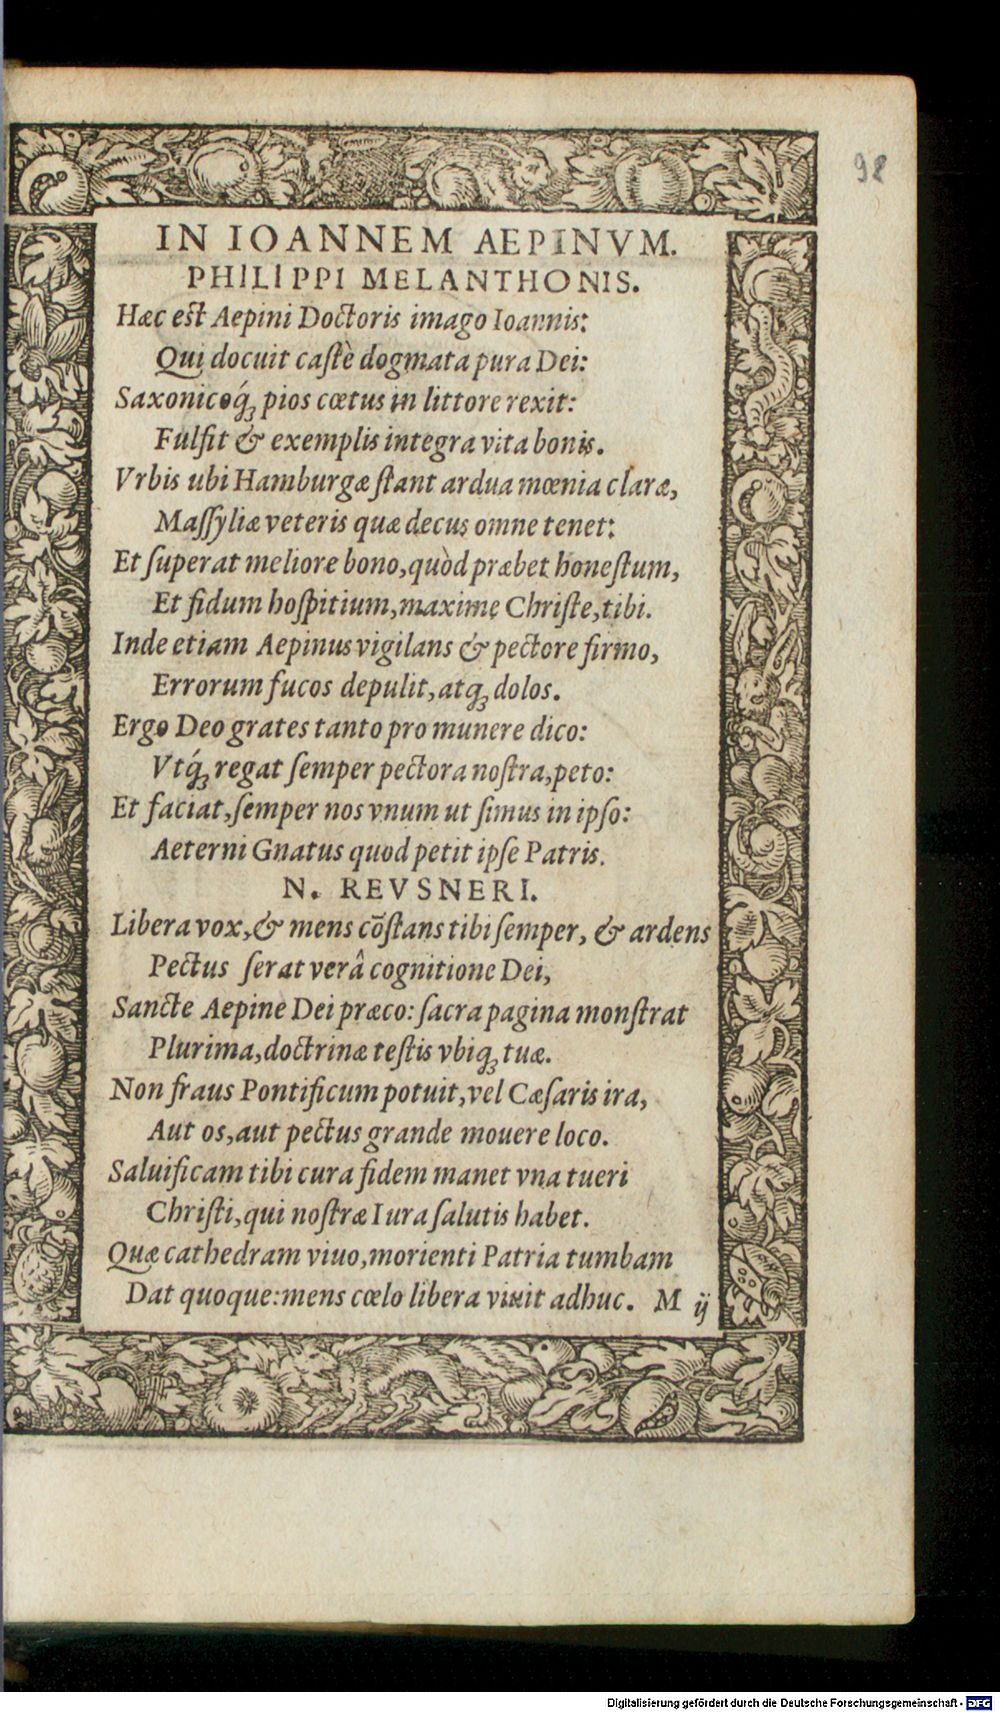 98
IN IOANNEM AEPINVM.
PHILIPPI MELANTHONIS.
Hæc est Aepini Doctoris imago Ioannis:
Qui docuit castè dogmata pura Dei:
Saxonicoq́ꝫ pios cœtus in littore rexit:
Fulsit & exemplis integra vita bonis.
Vrbis ubi Hamburgæ ſtant ardua mœnia claræ,
Maſſyliæ veteris quæ decus omne tenet:
Et ſuperat meliore bono, quòd præbet honeſtum,
Et fidum hoſpitium, maximę Chriſte, tibi.
Inde etiam Aepinus vigilans & pectore firmo,
Errorum fucos depulit, atqꝫ dolos.
Ergo Deo grates tanto pro munere dico:
Vtq́ꝫ regat ſemper pectora noſtra, peto:
Et faciat, ſemper nos vnum ut ſimus in ipſo:
Aeterni Gnatus quod petit ipſe Patris.
N. REVSNERI.
Libera vox, & mens cõſtans tibi ſemper, & ardens
Pectus ſerat verâ cognitione Dei,
Sancte Aepine Dei præco: ſacra pagina monſtrat
Plurima, doctrinæ teſtis vbiqꝫ tuæ.
Non fraus Pontificum potuit, vel Cæſaris ira,
Aut os, aut pectus grande mouere loco.
Saluificam tibi cura fidem manet vna tueri
Chriſti, qui noſtræ Iura ſalutis habet.
Quæ cathedram viuo, morienti Patria tumbam
Dat quoque: mens cœlo libera viuit adhuc. M ij
Digitalisierung gefördert durch die Deutsche Forschungsgemeinschaft - DFG